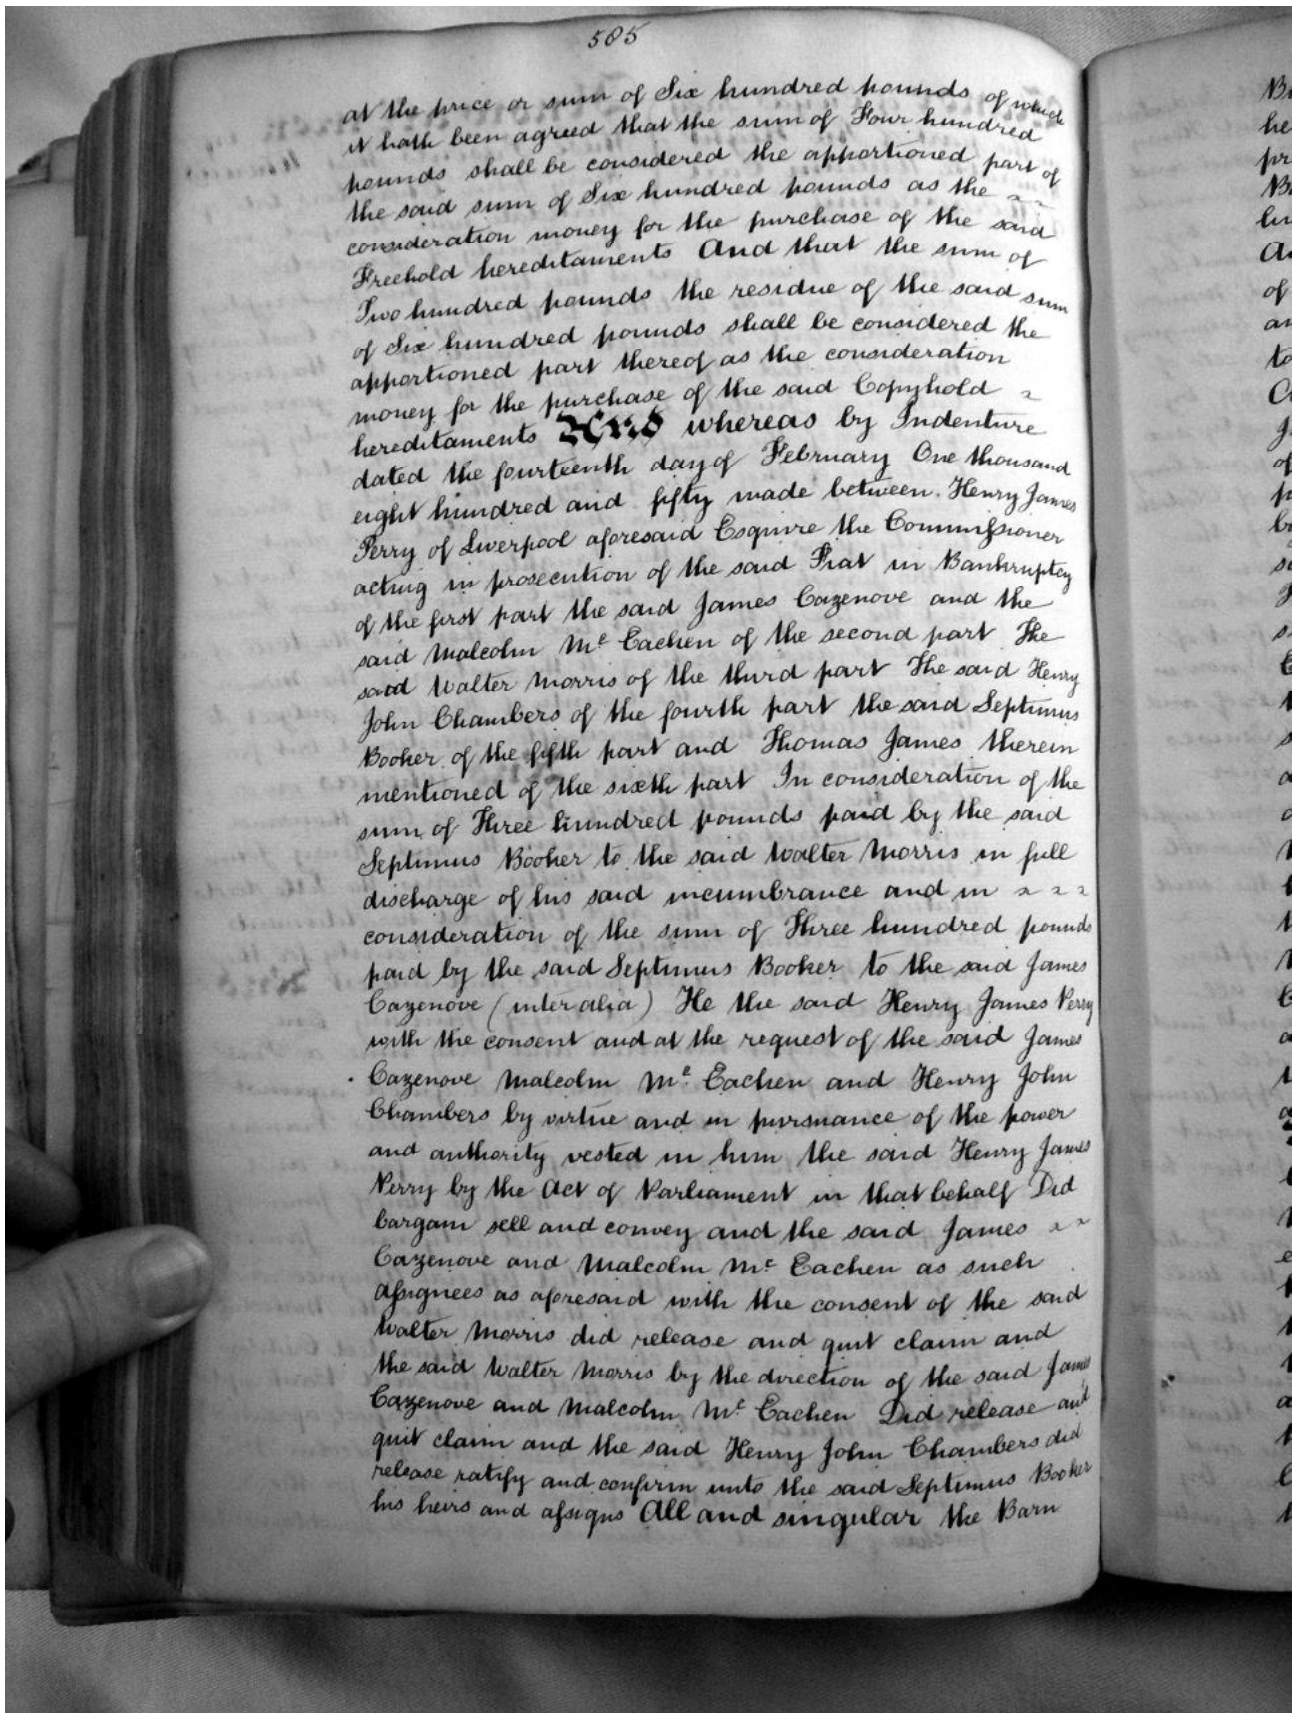 585
at the price or sum of Six hundred pounds of which
it hath been agreed that the sum of Four hundred
pounds shall be considered the apportioned part of
the said sum of Six hundred pounds as the
consideration money for the purchase of the said
Freehold hereditaments And that the sum of
Two hundred pounds the residue of the said sum
of Six hundred pounds shall be considered the
apportioned part thereof as the consideration
money for the purchase of the said Copyhold
hereditaments And whereas by Indenture
dated the fourteenth day of February One thousand
eight hundred and fifty made between Henry James
Perry of Liverpool aforesaid Esquire the Commissioner
acting in prosecution of the said Fiat in Bankruptcy
of the first part the said James Cazenove and the
said Malcolm Mc Eachen of the second part The
said Walter Morris of the third part The said Henry
John Chambers of the fourth part the said Septimus
Booker of the fifth part and Thomas James therein
mentioned of the sixth part In consideration of the
sum of Three hundred pounds paid by the said
Septimus Booker to the said Walter Morris in full
discharge of his said incumbrance and in
consideration of the sum of Three hundred pounds
paid by the said Septimus Booker to the said James
Cazenove (inter alia) He the said Henry James Perry
with the consent and at the request of the said James
Cazenove Malcolm Mc Eachen and Henry John
Chambers by virtue and in pursuance of the power
and authority vested in him the said Henry James
Perry by the Act of Parliament in that behalf Did
bargain sell and convey and the said James
Cazenove and Malcolm Mc Eachen as such
Assignees as aforesaid with the consent of the said
Walter Morris did release and quit claim and
the said Walter Morris by the direction of the said James
Cazenove and Malcolm Mc Eachen Did release and
quit claim and the said Henry John Chambers did
release ratify and confirm unto the said Septimus Booker
his heirs and assigns All and singular the Barn